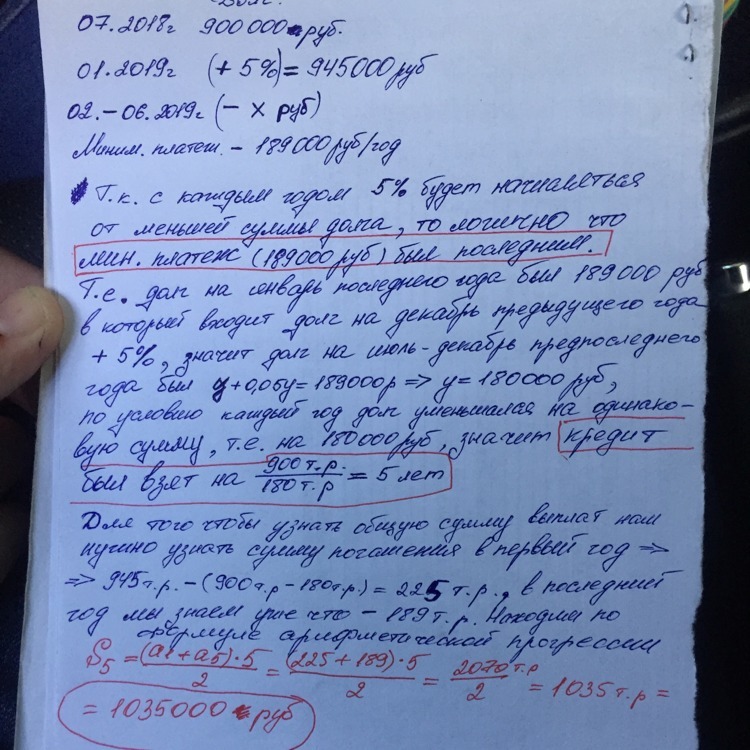 Долг.
07.2018г 900 000 руб.
01.2019г (+ 5%) = 945000 руб
02.-06.2019г (- x руб)
Миним. платеж. - 189000 руб/год
Т.к. с каждым годом 5% будет начисляться
от меньшей суммы долга, то логично что
мин. платеж (189000 руб) был последним.
Т.е. долг на январь последнего года был 189 000 руб
в который входит долг на декабрь предыдущего года
+ 5%, значит долг на июль-декабрь предпоследнего
года был y+0,05y=189000р => y=180000 руб,
по условию каждый год долг уменьшался на одинако-
вую сумму, т.е. на 180000 руб, значит кредит
был взят на 900т.р./180т.р = 5 лет
Для того чтобы узнать общую сумму выплат нам
нужно узнать сумму погашения в первый год =>
=> 945т.р. - (900т.р - 180т.р.) = 225 т.р., в последний
год мы знаем уже что - 189т.р. Находим по
формуле арифметической прогрессии
S5 = (a1+a5)·5/2 = (225+189)·5/2 = 2070т.р/2 = 1035т.р =
= 1035000 руб